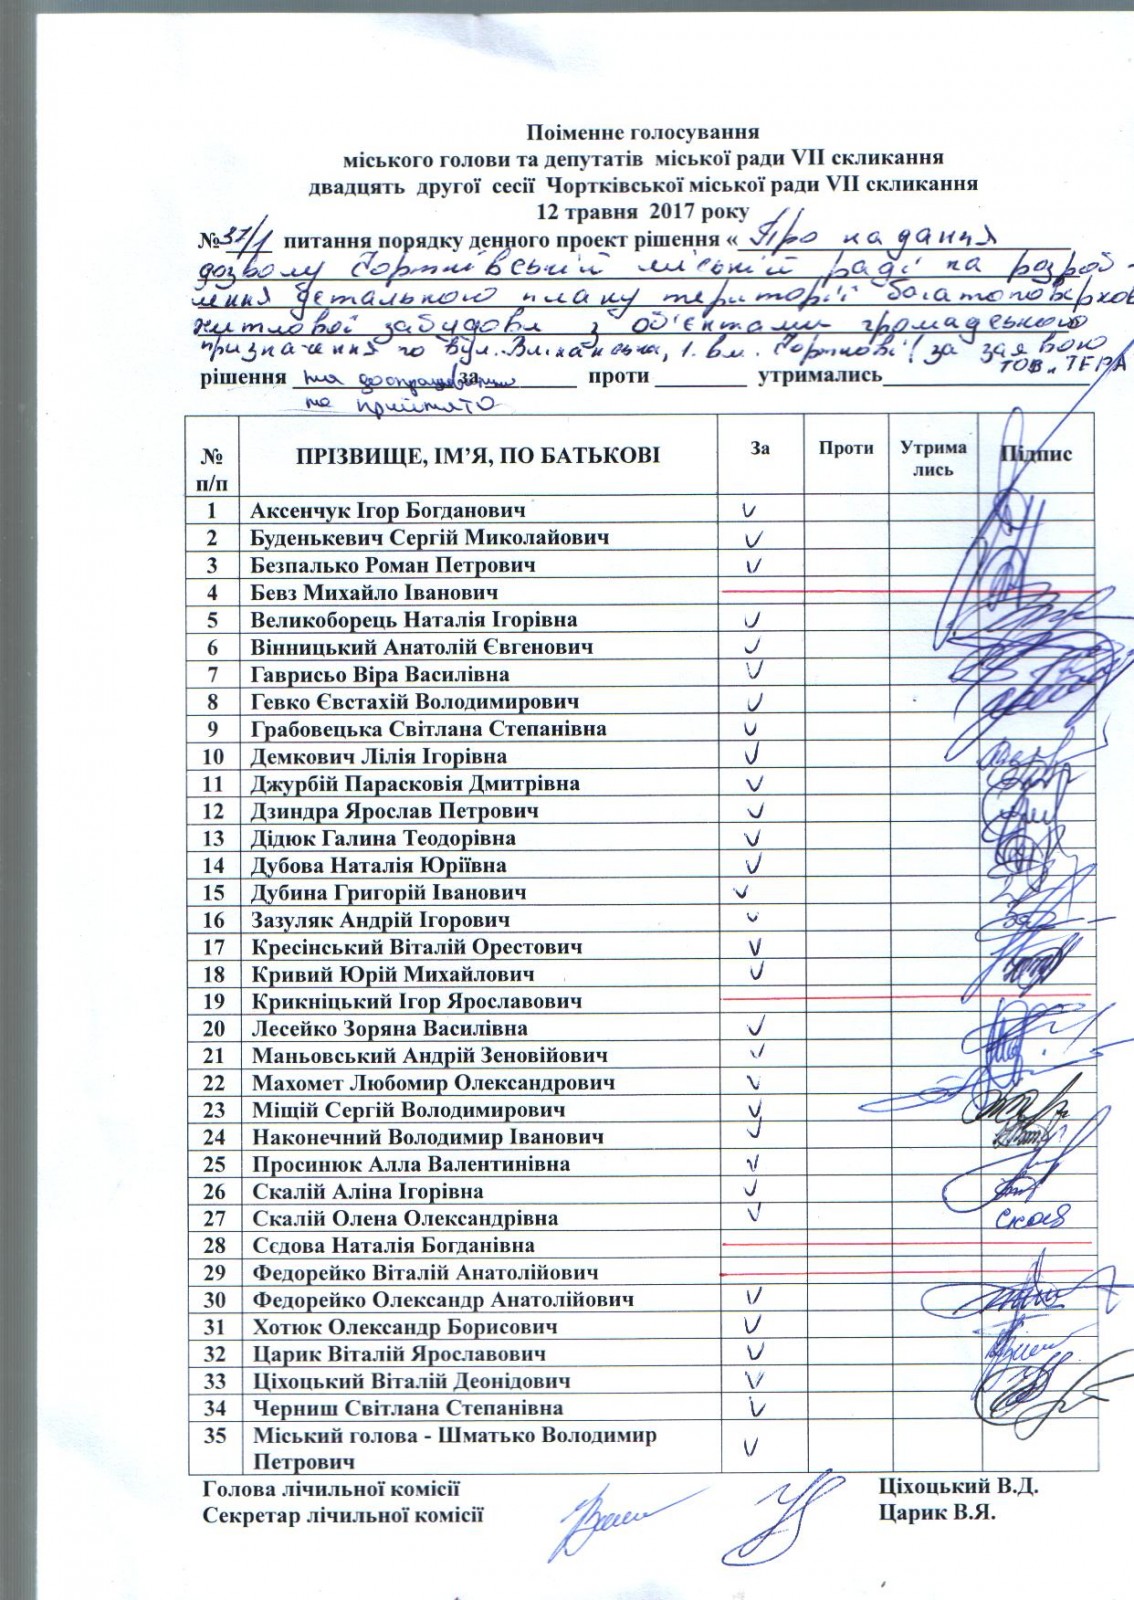 Поіменне голосування
міського голови та депутатів міської ради VII скликання
двадцять другої сесії Чортківської міської ради VII скликання
12 травня 2017 року
№37/1 питання порядку денного проект рішення «Про надання
дозволу Чортківській міській раді на розроб-
лення детального плану території багатоповерхової
житлової забудови з об'єктами громадського
призначення по вул. , 1. в м. Чорткові за заявою
ТОВ „ТЕРА
рішення на доопрацювання за проти утримались
та прийнято
№ п/п ПРІЗВИЩЕ, ІМ’Я, ПО БАТЬКОВІ За Проти Утрима лись Підпис
1 Аксенчук Ігор Богданович V
2 Буденькевич Сергій Миколайович V
3 Безпалько Роман Петрович V
4 Бевз Михайло Іванович
5 Великоборець Наталія Ігорівна V
6 Вінницький Анатолій Євгенович V
7 Гаврисьо Віра Василівна V
8 Гевко Євстахій Володимирович V
9 Грабовецька Світлана Степанівна V
10 Демкович Лілія Ігорівна V
11 Джурбій Парасковія Дмитрівна V
12 Дзиндра Ярослав Петрович V
13 Дідюк Галина Теодорівна V
14 Дубова Наталія Юріївна V
15 Дубина Григорій Іванович V
16 Зазуляк Андрій Ігорович V
17 Кресінський Віталій Орестович V
18 Кривий Юрій Михайлович V
19 Крикніцький Ігор Ярославович
20 Лесейко Зоряна Василівна V
21 Маньовський Андрій Зеновійович V
22 Махомет Любомир Олександрович V
23 Міщій Сергій Володимирович V
24 Наконечний Володимир Іванович V
25 Просинюк Алла Валентинівна V
26 Скалій Аліна Ігорівна V
27 Скалій Олена Олександрівна V
28 Сєдова Наталія Богданівна
29 Федорейко Віталій Анатолійович
30 Федорейко Олександр Анатолійович V
31 Хотюк Олександр Борисович V
32 Царик Віталій Ярославович V
33 Ціхоцький Віталій Деонідович V
34 Черниш Світлана Степанівна V
35 Міський голова - Шматько Володимир V
Петрович
Голова лічильної комісії Ціхоцький В.Д.
Секретар лічильної комісії Царик В.Я.